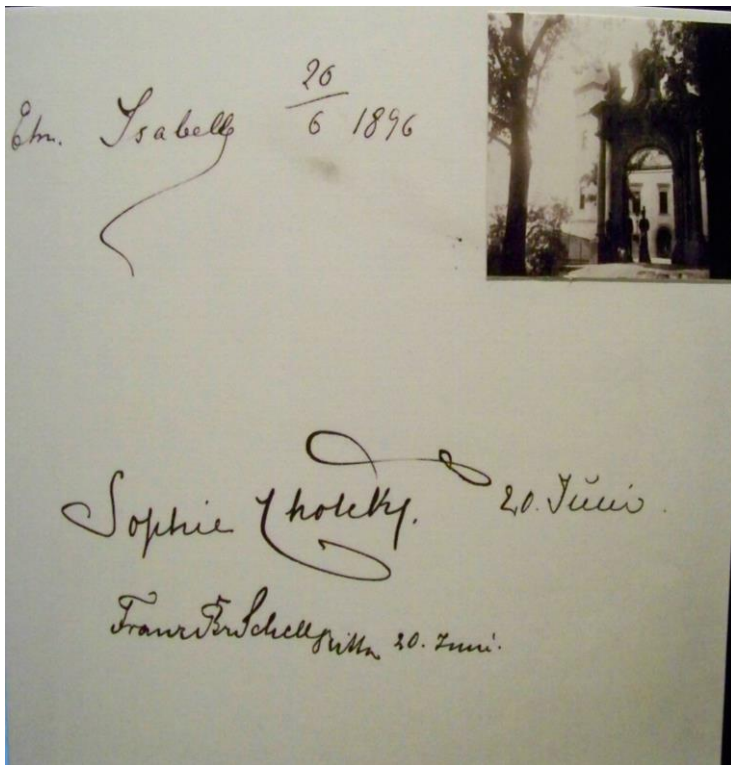 Isabelle 20/6 1896
Sophie Chotek. 20. Juni.
Franz Schell 20. Juni.